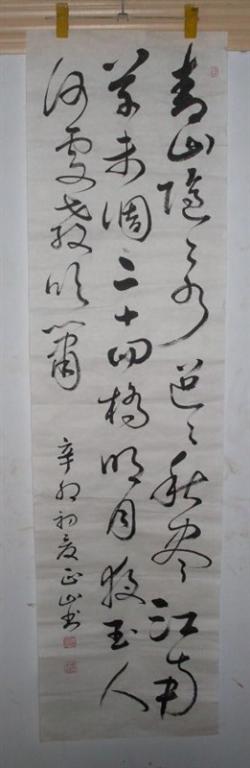 青山隱〻水迢〻秋盡江南
草未凋二十四橋明月夜玉人
何處教吹簫
辛卯初夏正山书